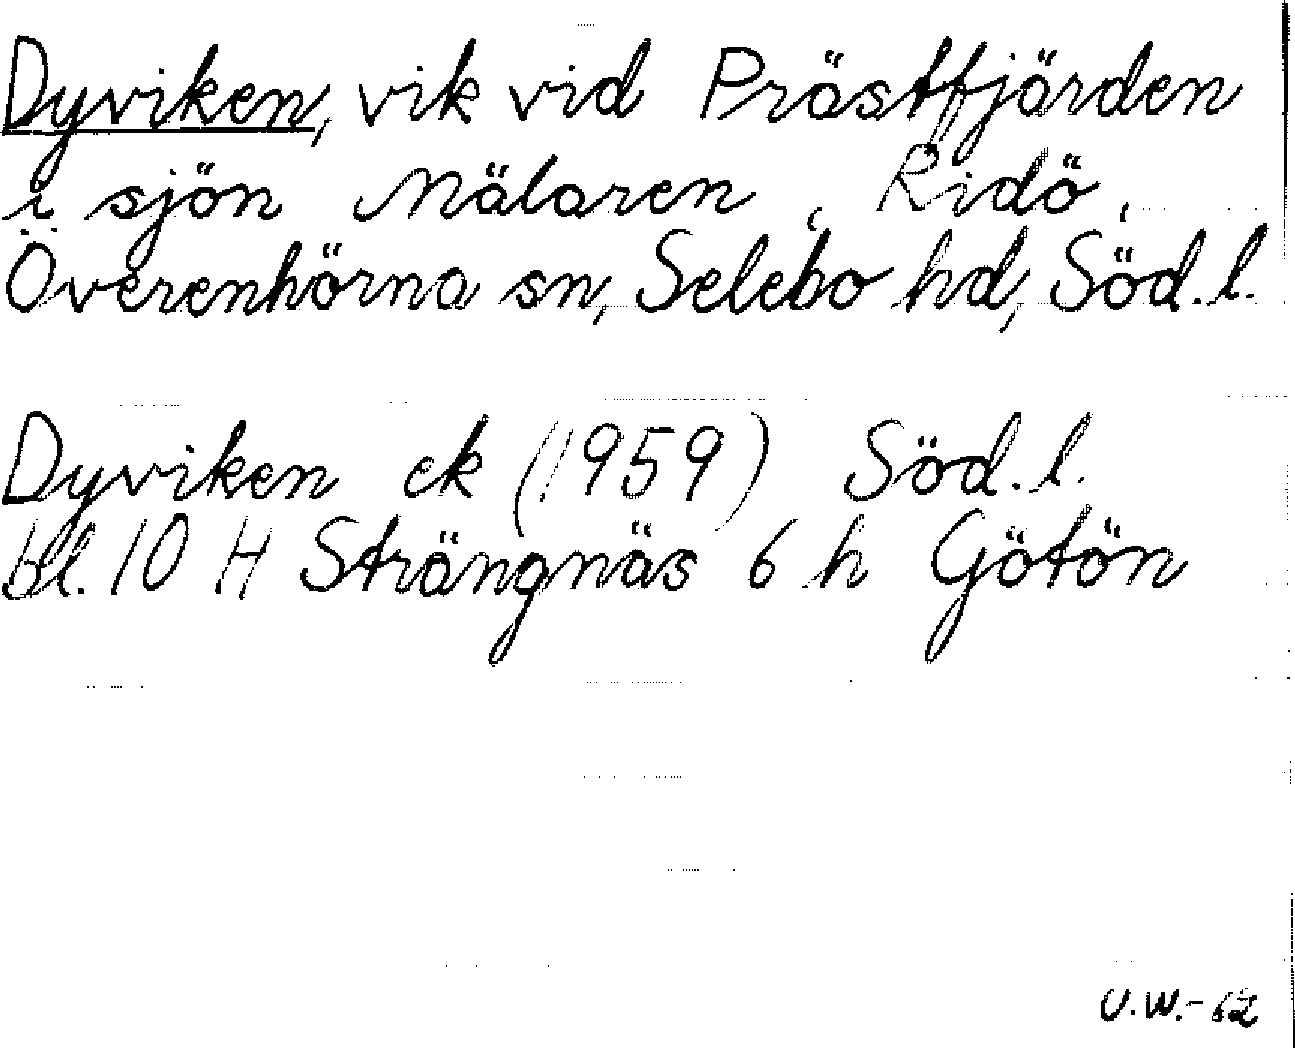 Dyviken, vik vid Prästfjärden
i sjön Mälaren, Ridö,
Överenhörna sn, Selebo hd, Söd.l.
Dyviken ek (1959) Söd.l.
bl. 10 H Strängnäs 6 h Götön
U.W.-62